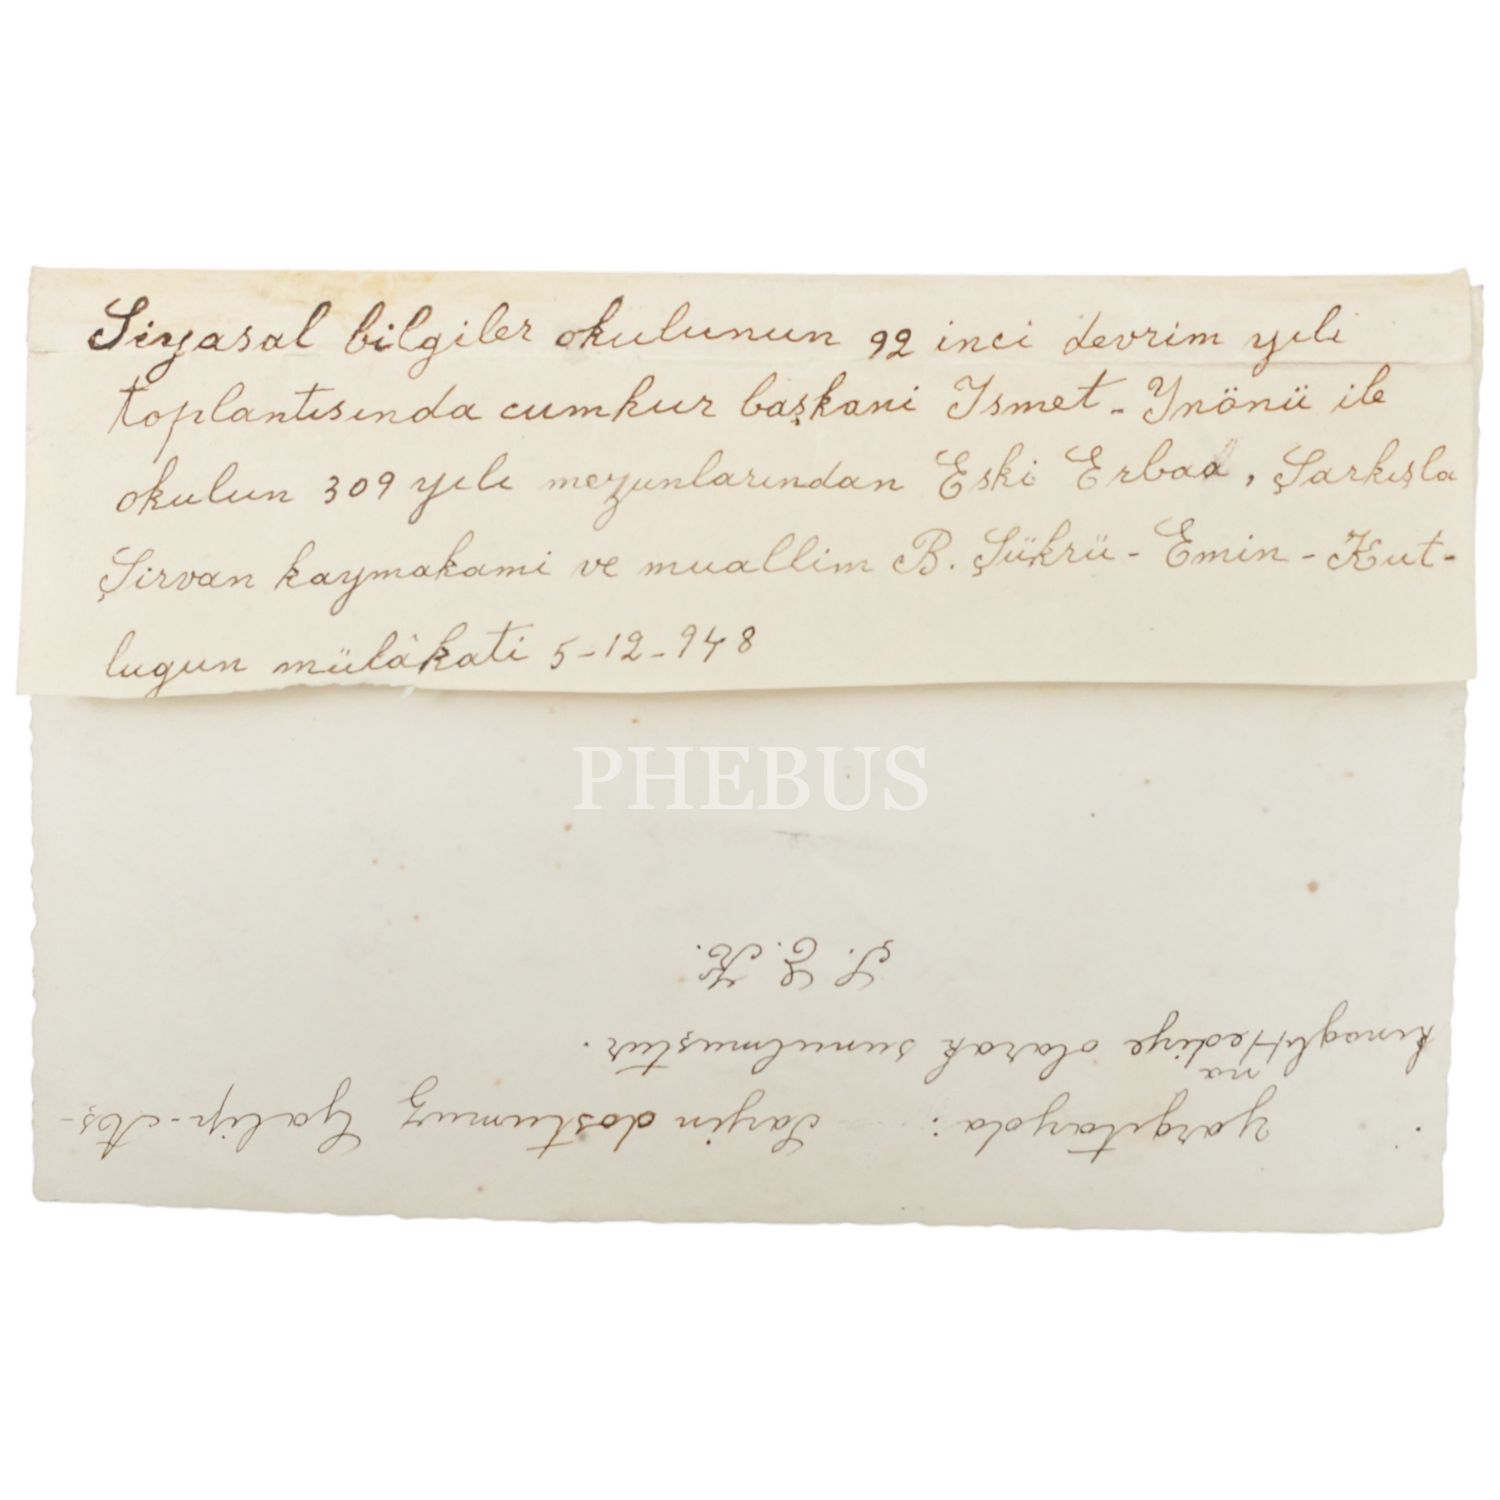 Siyasal bilgiler okulunun 92 inci devrim yılı
toplantısında cumhur başkani Ismet - Ynönü ile
okulun 309 yılı mezunlarından Eski Erbaa, Şarkışla
Şirvan kaymakami ve muallim B. Şükrü - Emin - Kut-
lugun mülâkati 5-12-948
PHEBUS
Yargıtayda : Sayin dostumuz Galip - As-
kınoglu na Hediye olarak sunulmuştur.
Ş. E. K.